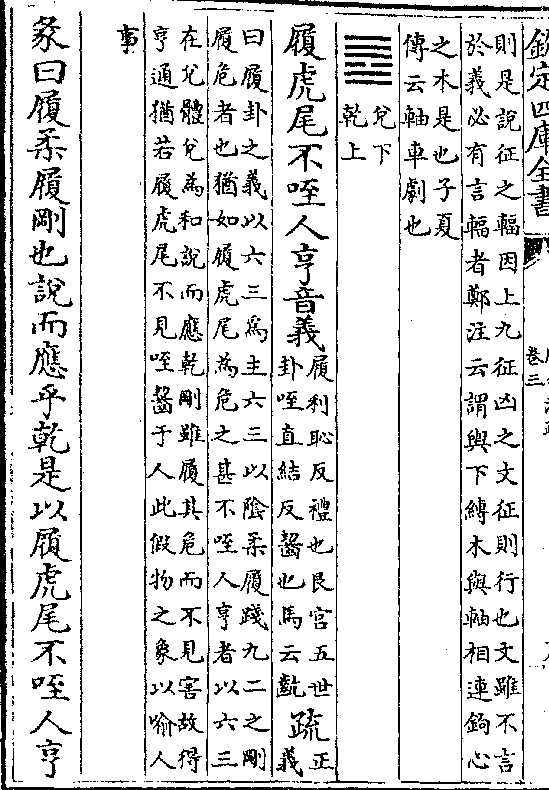 欽定四庫全書
卷三
則是說征之輻因上九征凶之文征則行也文雖不言
於義必有言輻者鄭注云謂與下縛木與軸相連鉤心
之木是也子夏
傳云軸車劇也
兌下
乾上
履虎尾不咥人亨音義履利恥反禮也艮宮五世卦咥直結反齧也馬云齕疏正義
曰履卦之義以六三爲主六三以陰柔履踐九二之剛
履危者也猶如履虎尾為危之甚不咥人亨者以六三
在兌體兌為和說而應乾剛雖履其危而不見害故得
亨通猶若履虎尾不見咥齧于人此假物之象以喻人
事
彖曰履柔履剛也說而應乎乾是以履虎尾不咥人亨